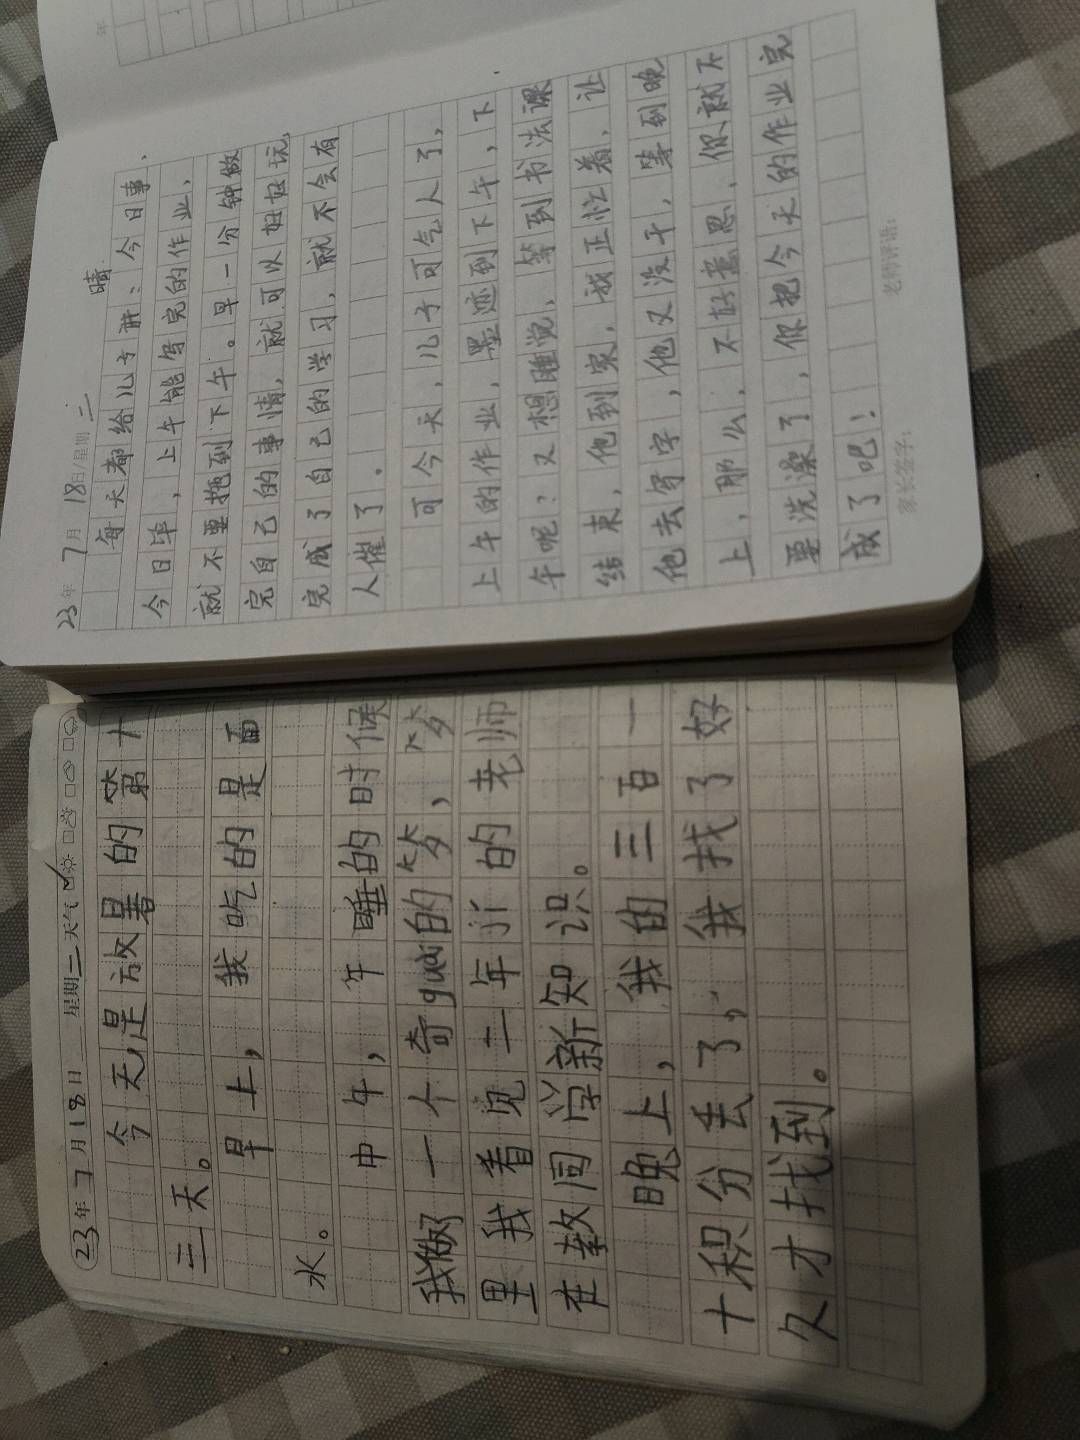 23年7月18日/星期二 晴
每天都给儿子讲：今日事、
今日毕，上午能写完的作业，
就不要拖到下午。早一分钟做
完自己的事情，就可以好好玩
完成了自己的学习，就不会有
人催了。
可今天，儿子可气人了，
上午的作业，墨迹到下午，下
午呢？又想睡觉，等到书法课
结束，他到家，我正忙着，让
他去写字，他又没干，等到晚
上，那么，不好意思，你就不
要洗澡了，你把今天的作业完
成了吧！
家长签字：
老师评语：
23年7月18日 星期二 天气
今天是放暑的第十
三天。
早上，我吃的是面
水。
中午，午睡的时候
我做了一个奇guai的梦，梦
里我看见二年许的老师
在教同学新知识。
晚上，我的三百一
十积分丢了，我找了好
久才找到。